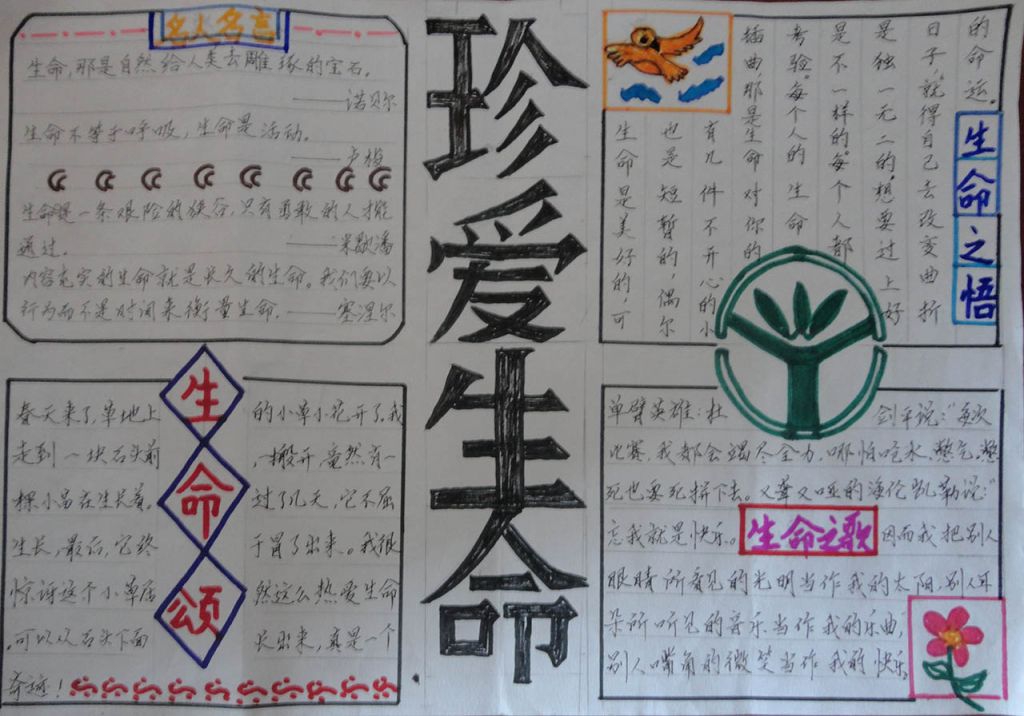 珍爱生命
名人名言
生命,那是自然给人类去雕琢的宝石。
——诺贝尔
生命不等于呼吸,生命是活动。
——卢梭
生命是一条艰险的峡谷,只有勇敢的人才能
通过。——米歇潘
内容充实的生命就是长久的生命。我们要以
行为而不是时间来衡量生命。——塞涅尔
生命之悟
生命是美好的,可
也是短暂的,偶尔
有几件不开心的小
插曲,那是生命对你的
考验。每个人的生命
是不一样的。每个人都
是独一无二的。想要过上好
日子,就得自己去改变曲折
的命运。
生命颂
春天来了,草地上的小草小花开了,我
走到一块石头前,一搬开,竟然有一
棵小苗在生长着。过了几天,它不屈
生长,最后,它终于冒了出来。我很
惊讶这个小草居然这么热爱生命
,可以从石头下面长出来,真是一个
奇迹!
生命之歌
单臂英雄:杜剑平说:“每次
比赛,我都会竭尽全力,哪怕呛水,憋气,憋
死也要死拼下去。又聋又哑的海伦凯勒说:“
忘我就是快乐。因而我把别人
眼睛所看见的光明当作我的太阳,别人耳
朵所听见的音乐当作我的乐曲,
别人嘴角的微笑当作我的快乐。